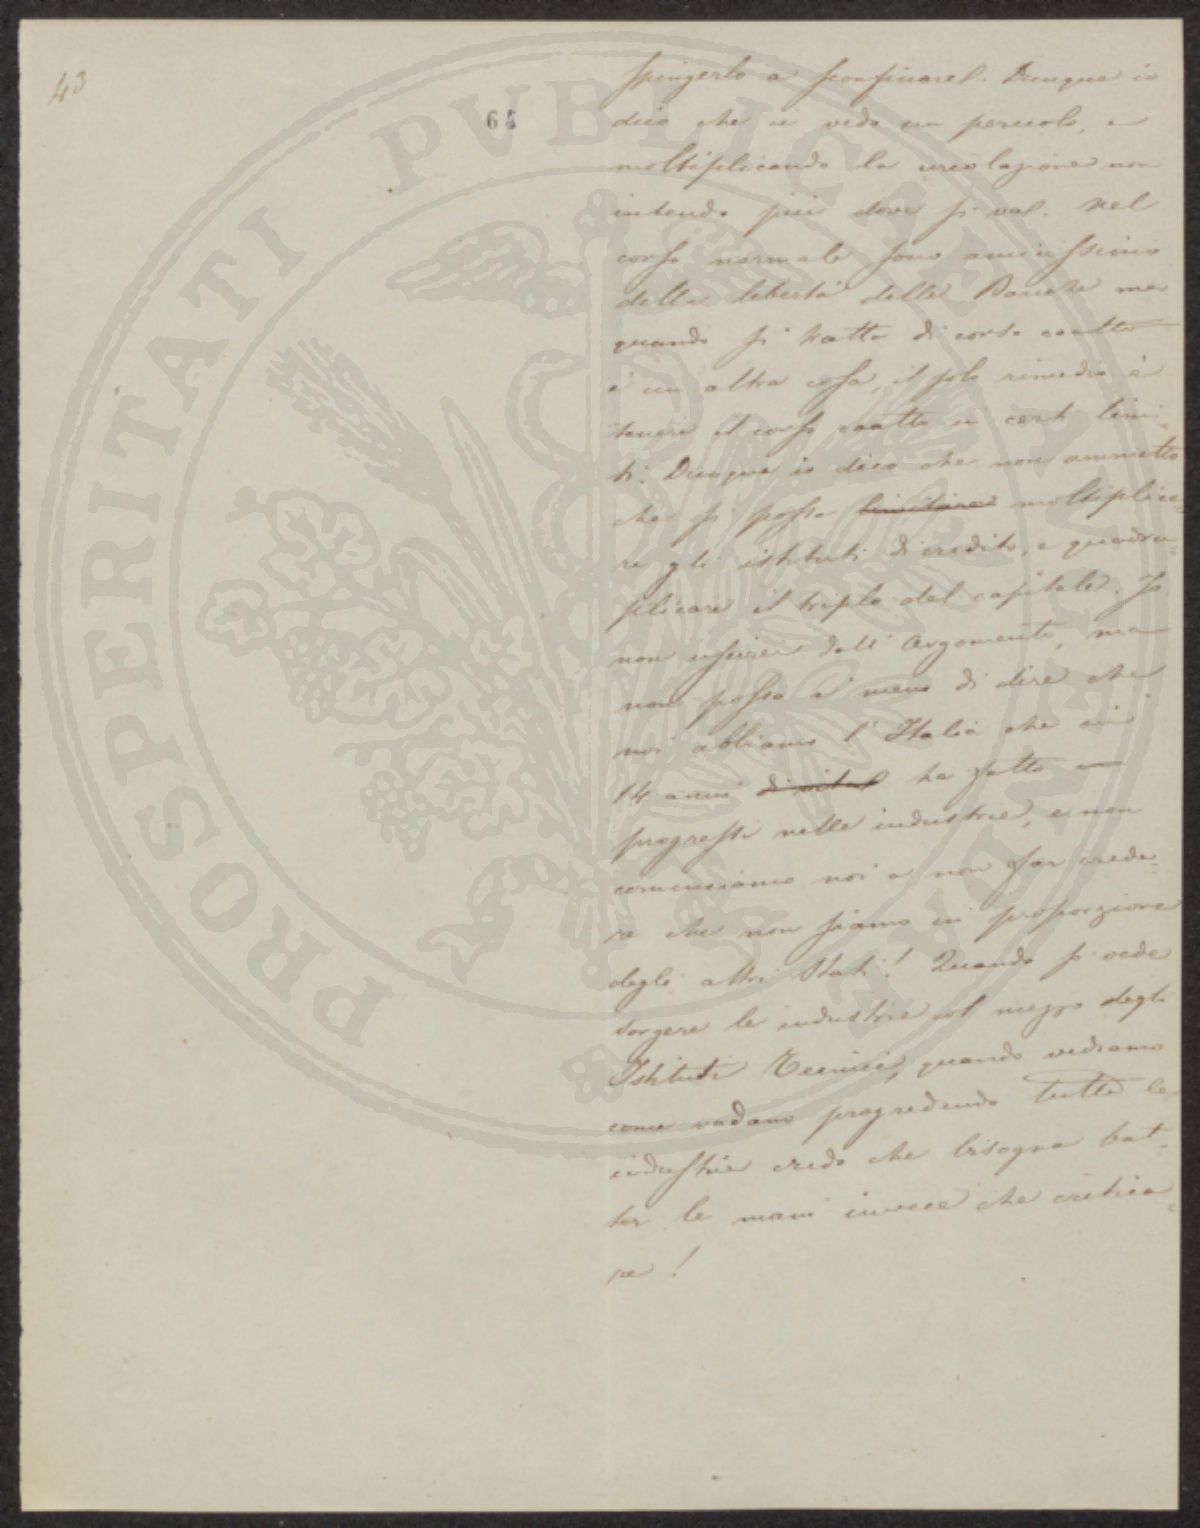 43
64
PROSPERITATI PVBLICAE AVGENDAE
spingerlo a sconfinare. Dunque io
dico che ci vedo un pericolo, e
moltiplicando la circolazione non
intendo più dove si va. Nel
corso normale sono amicissimo
della libertà delle Banche ma
quando si tratta di corso coatto
è un altra cosa, il solo rimedio è
tenere il corso coatto in certi limi-
ti. Dunque io dico che non ammetto
che si possa limitare moltiplica-
re gli istituti di credito, e quadru-
plicare il triplo del capitale. Io
non uscirei dall' Argomento, ma
non posso a meno di dire che
noi abbiamo l'Italia che in
14 anni di vita ha fatto
progressi nelle industrie, e non
cominciamo noi a non far crede-
re che non siamo in proporzione
degli altri Stati! Quando si vede
sorgere le industrie col mezzo degli
Istituti Tecnici, quando vediamo
come vadano progredendo tutte le
industrie credo che bisogna bat-
ter le mani invece che critica-
re!